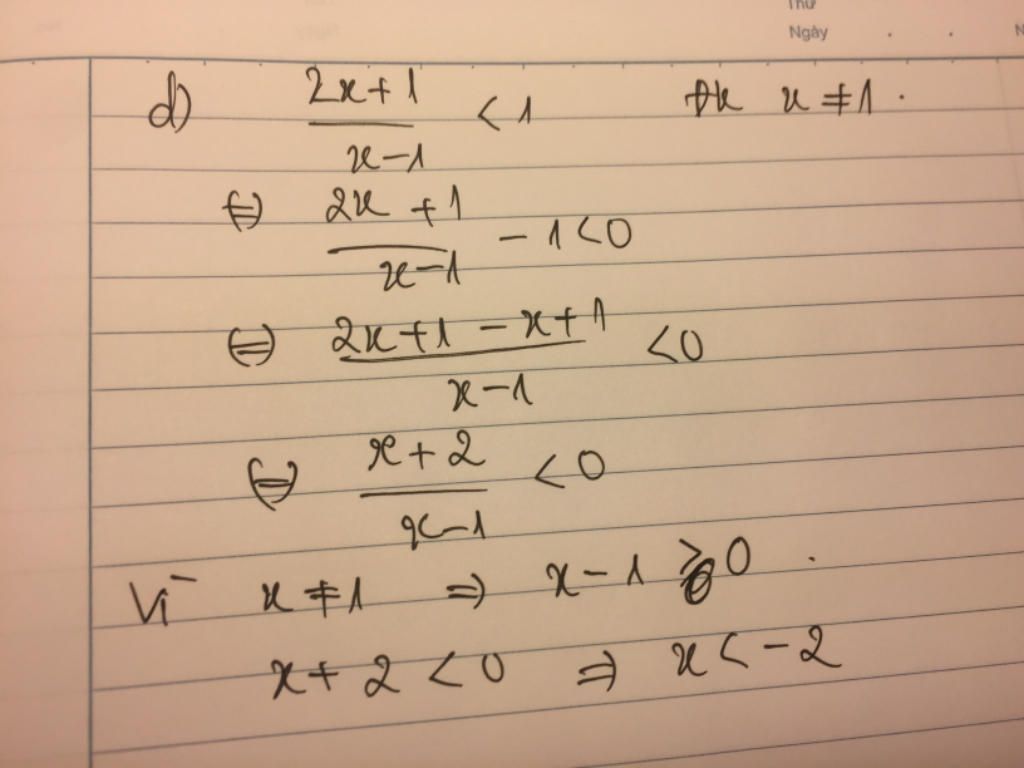 Thứ
Ngày
d) \frac{2x+1}{x-1} < 1 ĐK x ≠ 1.
⇔ \frac{2x+1}{x-1} - 1 < 0
⇔ \frac{2x+1-x+1}{x-1} < 0
⇔ \frac{x+2}{x-1} < 0
Vì x ≠ 1 ⇒ x - 1 > 0.
x + 2 < 0 ⇒ x < -2